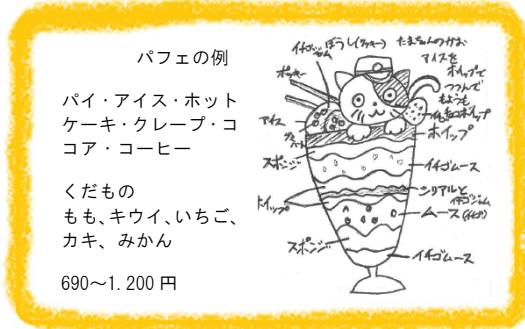 パフェの例
パイ・アイス・ホット
ケーキ・クレープ・コ
コア・コーヒー
くだもの
もも、キウイ、いちご、
カキ、みかん
690〜1.200円
イチゴジャム
ぼうし(クッキー)
たまちゃんのかお
アイスを
ホイップで
つつんで
もようも
ポッキー
アイス
ホイップ
スポンジ
イチゴムース
シリアルと
イチゴジャム
ホイップ
ムース
スポンジ
イチゴムース